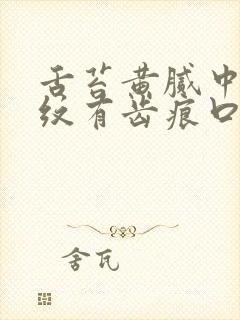 舌苔黄腻中
纹有齿痕口
舍瓦